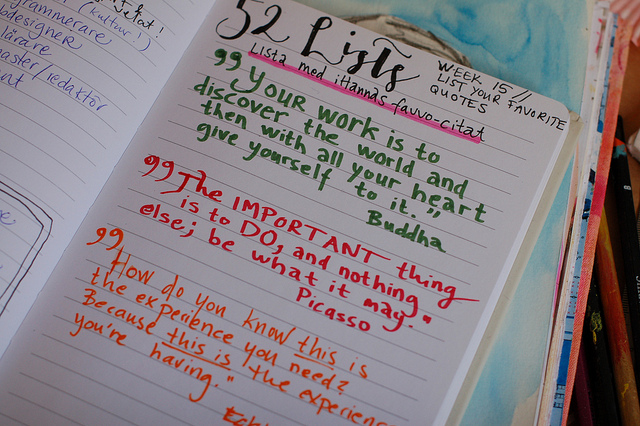 (kultur!)
grammerare
odesigner
lärare
master/redaktör
52 Lists
WEEK 15//
LIST YOUR FAVORITE
QUOTES
Lista med ittannas favvo-citat
99 Your work is to
discover the world and
then with all your heart
give yourself to it.",
Buddha
99 The IMPORTANT thing
is to DO, and nothing
else; be what it may."
Picasso
99 How do you know this is
the experience you need?
Because this is the experien
you're having."